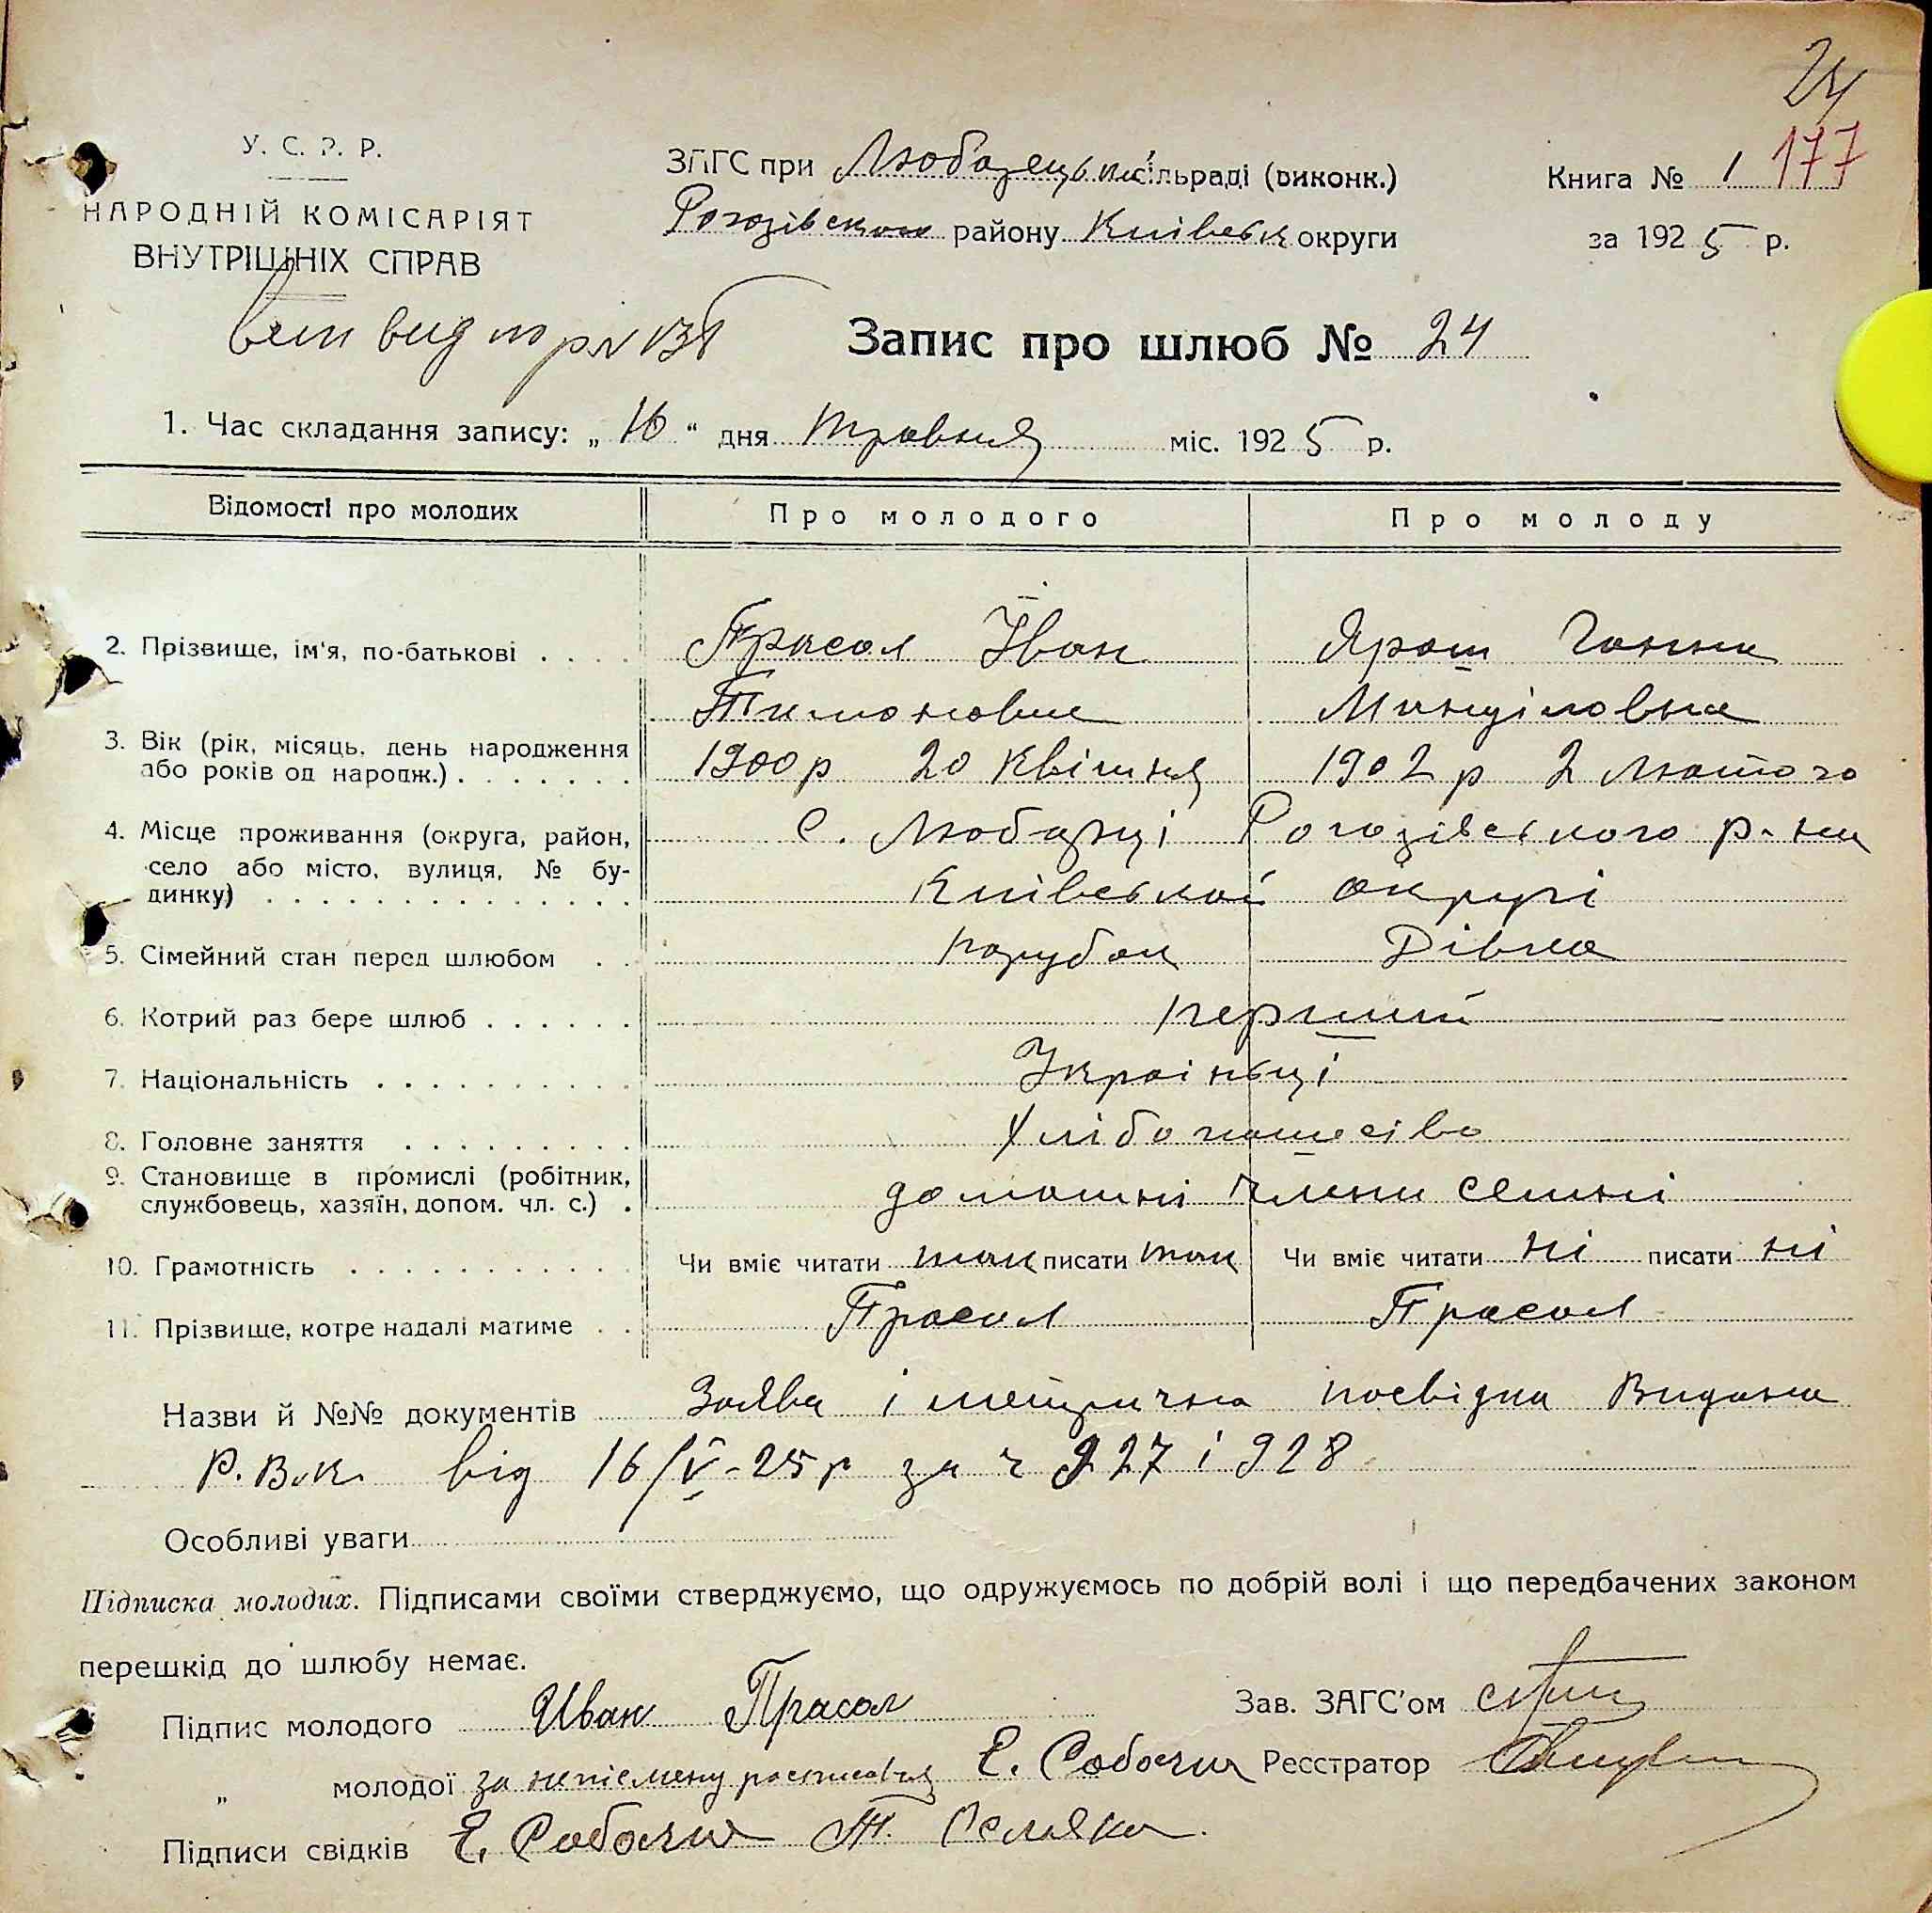 24
177
У. С. Р. Р.
НАРОДНІЙ КОМІСАРІЯТ
ВНУТРІШНІХ СПРАВ
ЗАГС при Любарецькій сільраді (виконк.)
Рогозівського району Київськ округи
Книга № 1
за 1925 р.
Запис про шлюб № 24
1. Час складання запису: „ 16 “ дня травня міс. 1925 р.
Відомості про молодих
Про молодого
Про молоду
2. Прізвище, ім'я, по-батькові . . . .
Прасол Іван
Тимонович
Ярош Ганна
3. Вік (рік, місяць, день народження
або років од народж.) . . . . . . .
1900р 20 квітня
1902 р 2 лютого
4. Місце проживання (округа, район,
село або місто, вулиця, № бу-
динку) . . . . . . . . . . . . . . .
с. Любарці Рогозівського р-на
Київської округі
5. Сімейний стан перед шлюбом . .
парубок
Дівка
6. Котрий раз бере шлюб . . . . . .
перший
7. Національність . . . . . . . . . .
Україньці
8. Головне заняття . . . . . . . . .
9. Становище в промислі (робітник,
службовець, хазяїн, допом. чл. с.) .
домашні члени семні
10. Грамотність . . . . . . . . . . .
Чи вміє читати так писати так
Чи вміє читати ні писати ні
11. Прізвище, котре надалі матиме . .
Прасол
Прасол
Назви й №№ документів Заява і метрична посвідка Видана
Р.В.К. від 16/V-25р за ч 927 і 928
Особливі уваги
Підписка молодих. Підписами своїми стверджуємо, що одружуємось по добрій волі і що передбачених законом
перешкід до шлюбу немає.
Підпис молодого Иван Прасол
Зав. ЗАГС'ом
„ молодої за неписмену Е. Собочия
Реєстратор
Підписи свідків Е. Собочия Т.